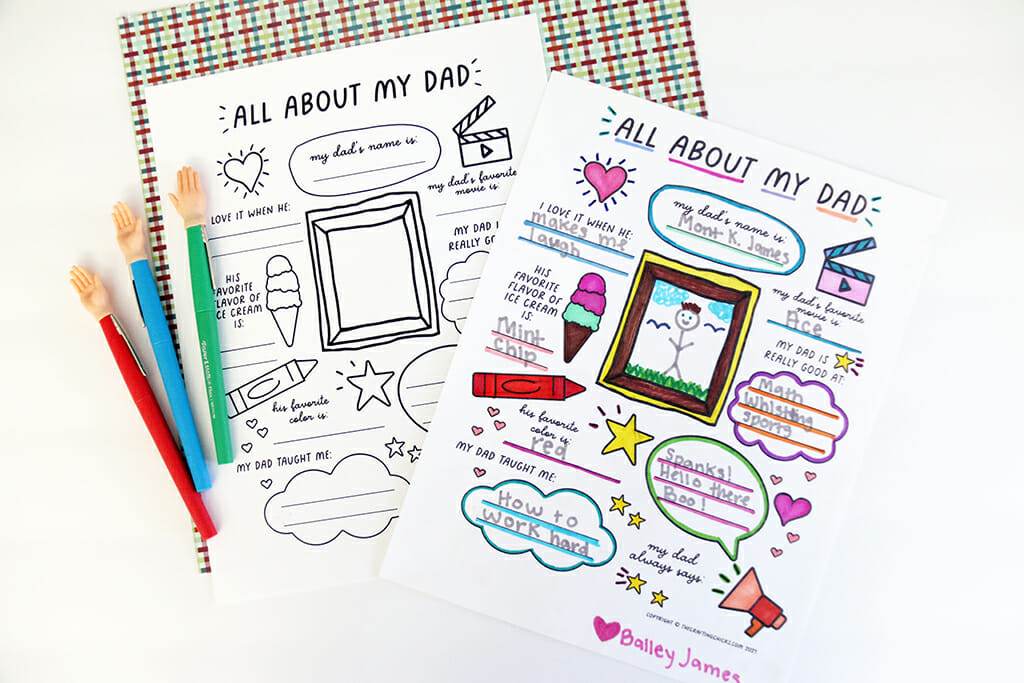 ALL ABOUT MY DAD
my dad's name is:
my dad's favorite
movie is:
I LOVE IT WHEN HE:
MY DAD IS
REALLY GOOD
HIS
FAVORITE
FLAVOR OF
ICE CREAM
IS:
his favorite
color is:
MY DAD TAUGHT ME:
ALL ABOUT MY DAD
my dad's name is:
Mont K. James
I LOVE IT WHEN HE:
makes me
laugh
my dad's favorite
movie is:
Ace
HIS
FAVORITE
FLAVOR OF
ICE CREAM
IS:
Mint
Chip
MY DAD IS
REALLY GOOD AT:
Math
Whistling
sports
his favorite
color is:
red
MY DAD TAUGHT ME:
How to
work hard
Spanks!
Hello there
Boo!
my dad
always says:
COPYRIGHT © THECRAFTINGCHICKS.COM 2021
Bailey James